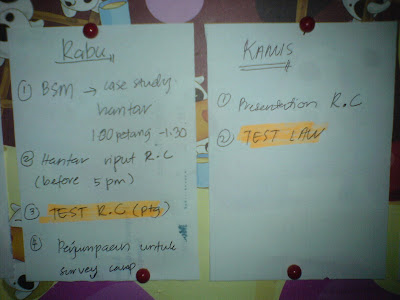 Rabu
① BSM → case study
hantar
1.00 petang - 1.30
② Hantar input R.C
(before 5 pm)
③ TEST R.C (ptg)
④ Perjumpaan untuk
survey camp
KAMIS
① Presentation R.C
② TEST LAW